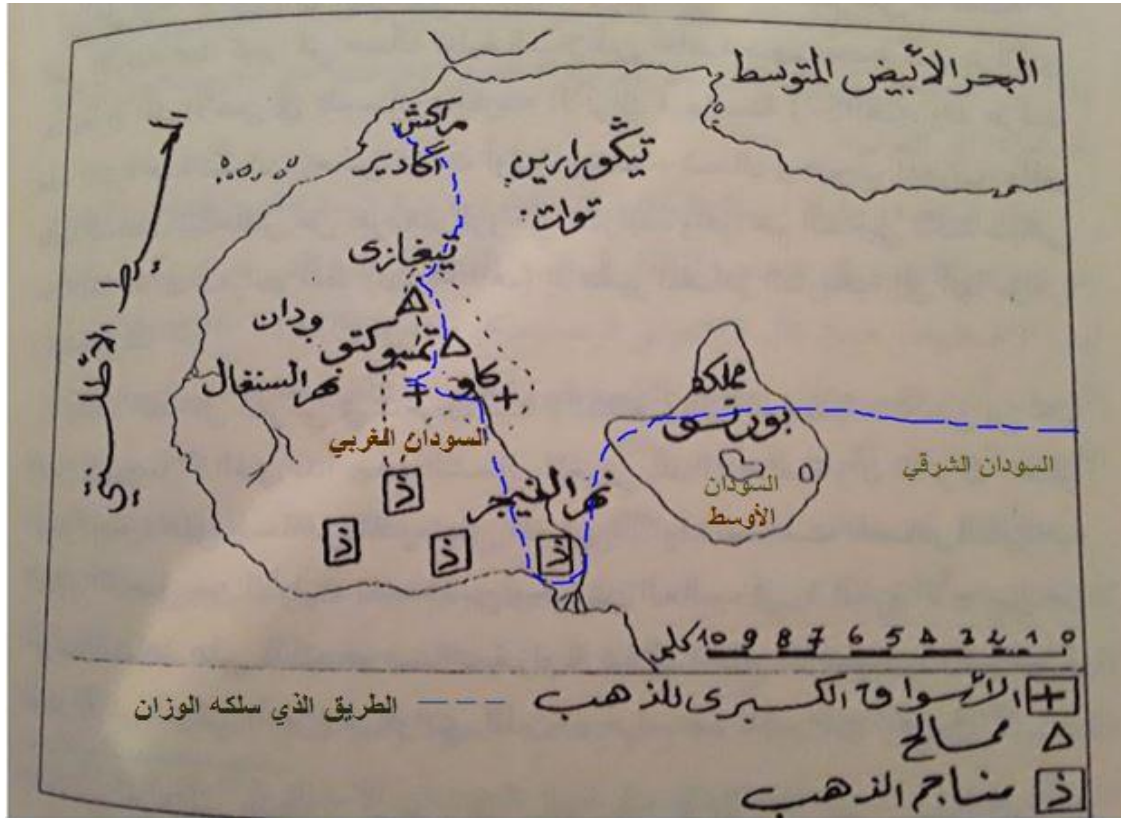 البحر الأبيض المتوسط
مراكش
أگادير
تيگورارين
توات
تيغازى
ودان
تمبوكتو
گاو
نهر السنغال
السودان الغربي
مملكة
بورنو
السودان
الأوسط
السودان الشرقي
نهر النيجر
ذ
ذ
ذ
ذ
10 9 8 7 6 5 4 3 2 1 0
+ الأسواق الكبرى للذهب
الطريق الذي سلكه الوزان
ممالح
ذ مناجم الذهب